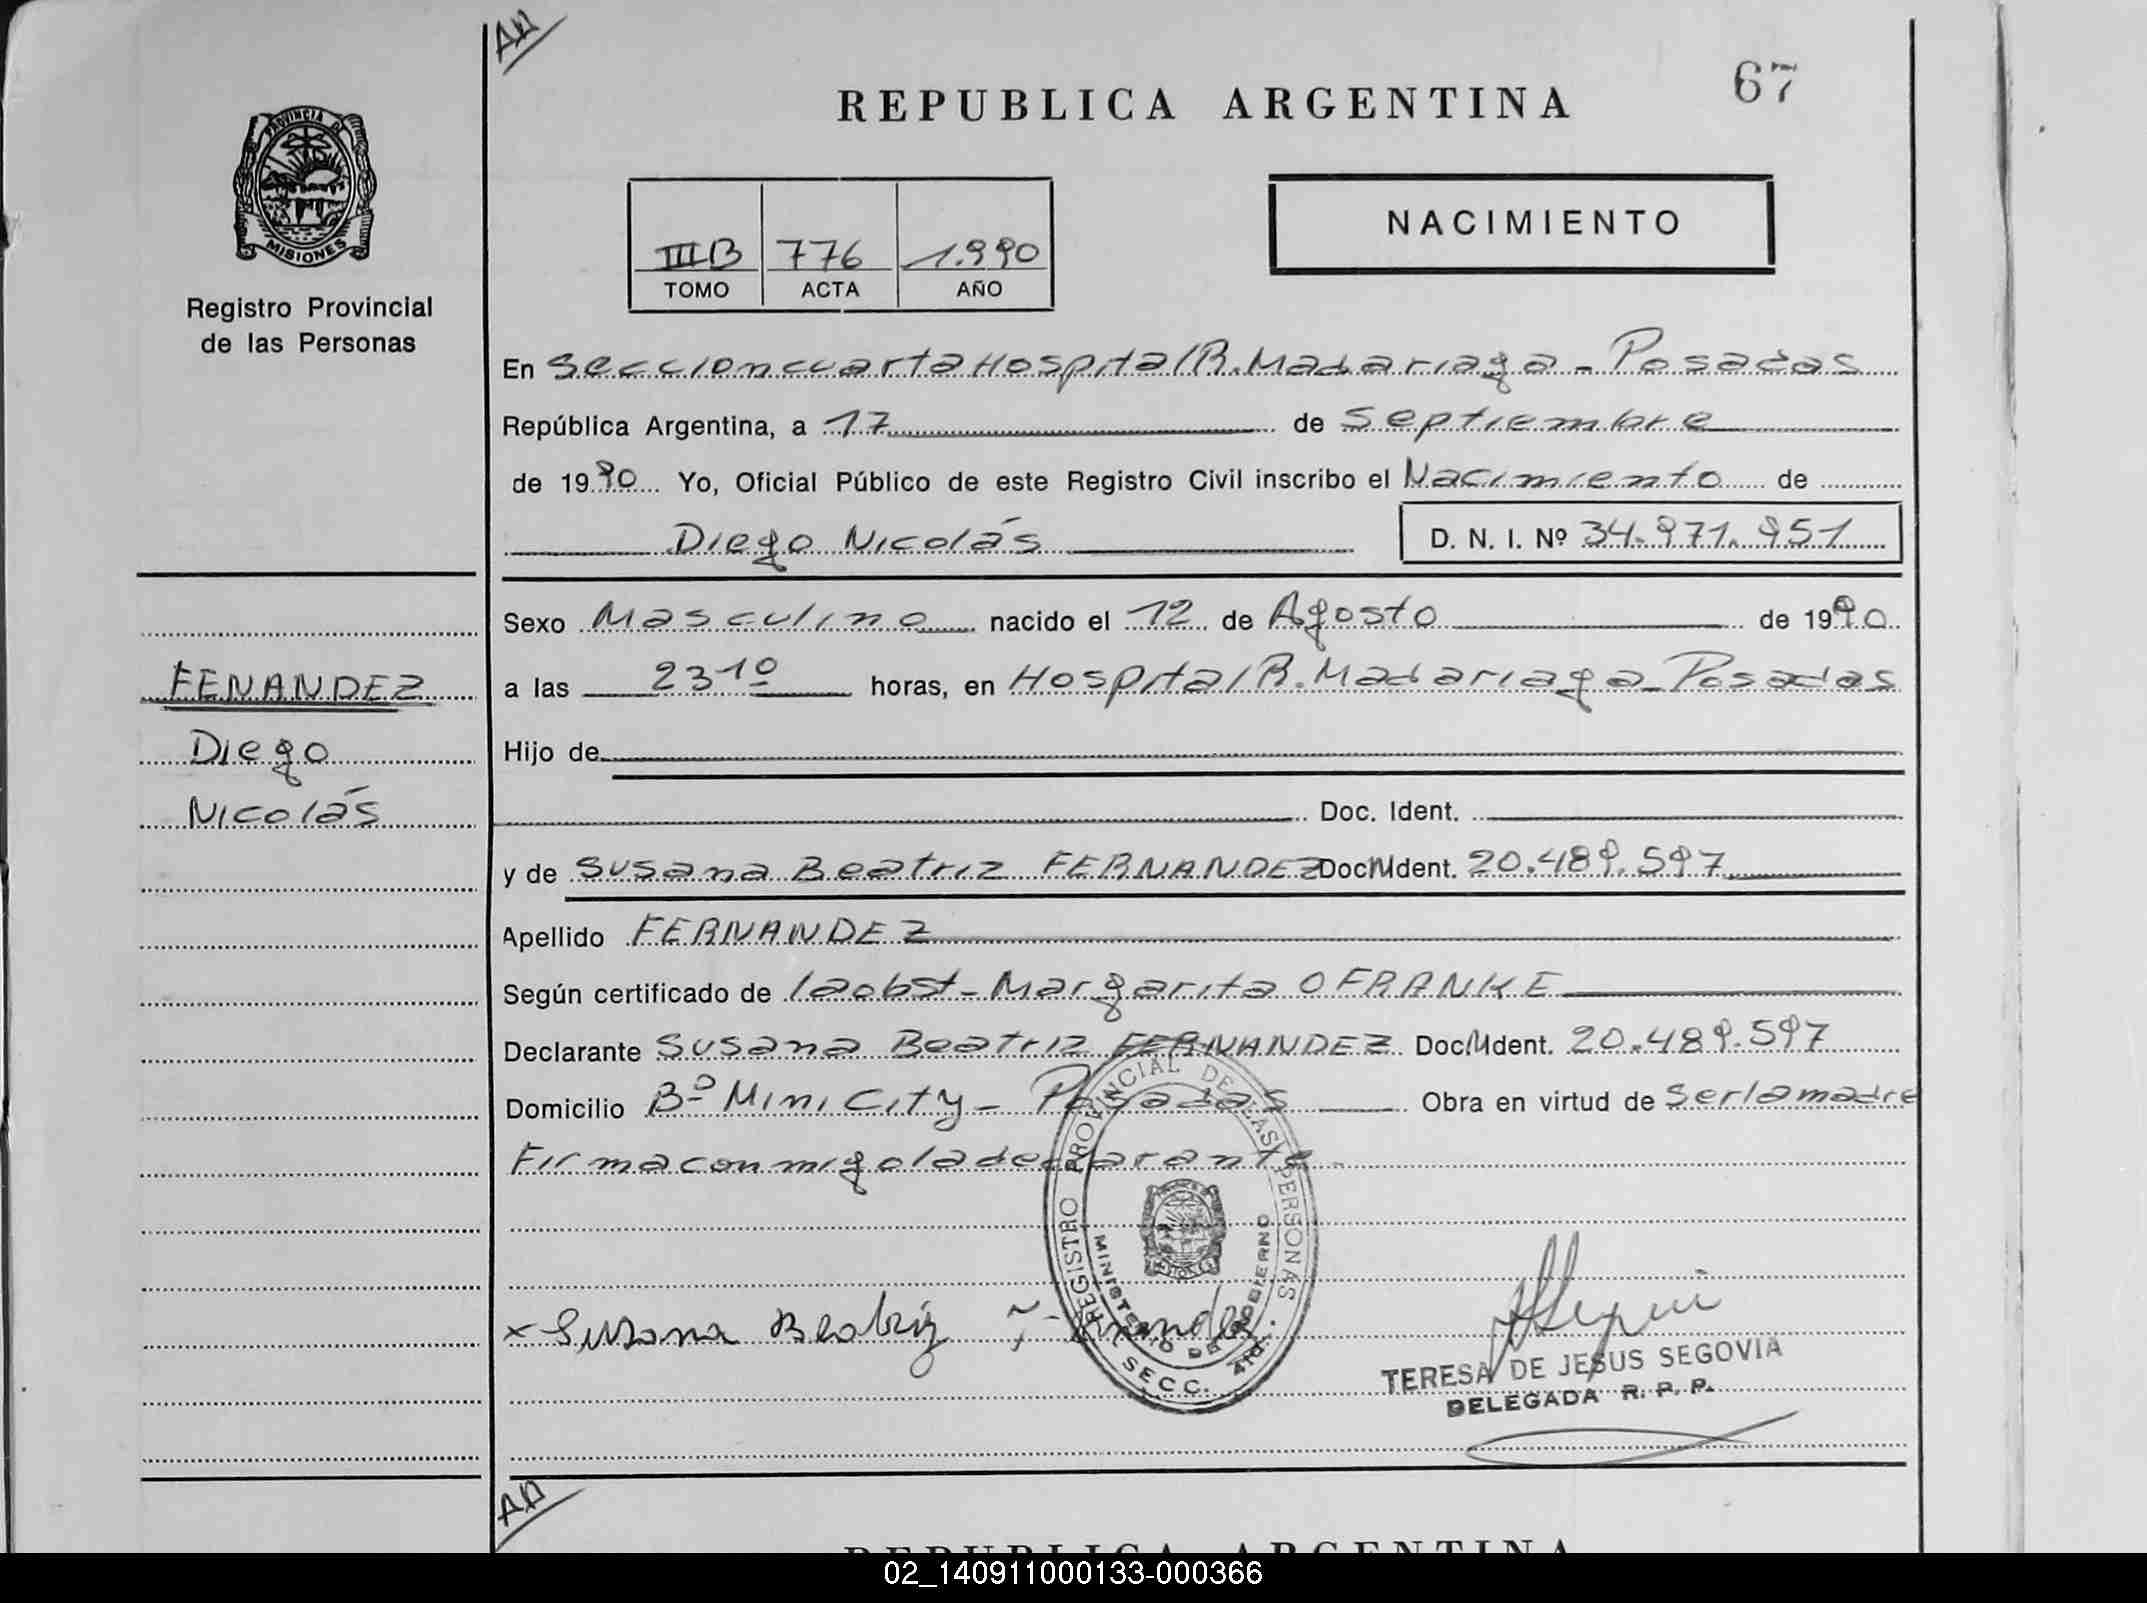 AD
67
REPUBLICA ARGENTINA
PROVINCIA D
MISIONES
Registro Provincial
de las Personas
NACIMIENTO
III B 776 1.990
TOMO ACTA AÑO
En Seccion cuarta Hospital R. Madariaga - Posadas
República Argentina, a 17 de Septiembre
de 1990 Yo, Oficial Público de este Registro Civil inscribo el Nacimiento de
Diego Nicolás D. N. I. Nº 34.971.951
Sexo Masculino nacido el 12 de Agosto de 1990
a las 23 10 horas, en Hospital R. Madariaga - Posadas
FENANDEZ
Diego
Nicolás
Hijo de
Doc. Ident.
y de Susana Beatriz FERNANDEZ Doc. Ident. 20.489.597
Apellido FERNANDEZ
Según certificado de la obst - Margarita O FRANKE
Declarante Susana Beatriz FERNANDEZ Doc. Ident. 20.489.597
Domicilio Bº Mini City - Posadas Obra en virtud de Ser la madre
Firma conmigo la declarante -
x Susana Beatriz Fernandez
REGISTRO PROVINCIAL DE LAS PERSONAS
MINISTERIO DE GOBIERNO
SECC. 4ta.
TERESA DE JESUS SEGOVIA
DELEGADA R. P. P.
AD
REPUBLICA ARGENTINA
02_140911000133-000366